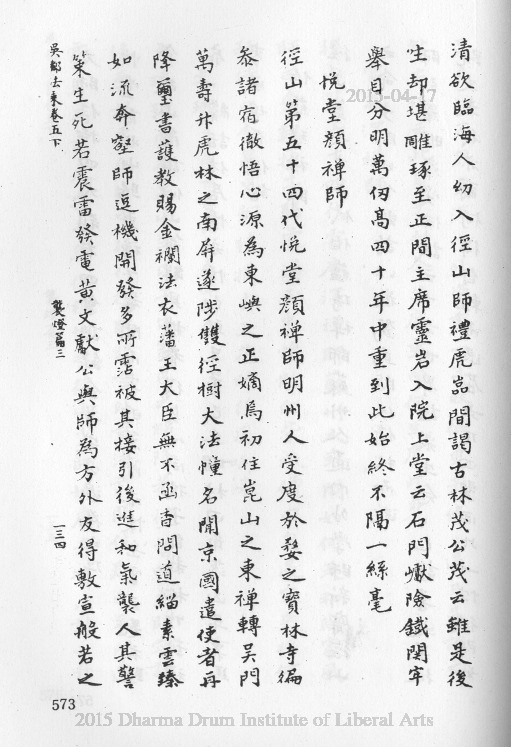 清欲臨海人幼入徑山師禮虎嵓間謁古林茂公茂云雖是後
生却堪雕琢至正間主席靈岩入院上堂云石門巇險鐵関牢
舉目分明萬仭高四十年中重到此始終不隔一絲毫
悅堂顏禪師
徑山第五十四代悅堂顏禪師明州人受度於婺之寶林寺徧
叅諸宿徹悟心源為東嶼之正嫡爲初住崑山之東禪轉吴門
萬壽廾虎林之南屛遂陟雙徑樹大法幢名聞京國遣使者再
降璽書護教賜金襴法衣藩王大臣無不函香問道緇素雲臻
如流奔壑師逗機開發多所霑被其接引後進和氣襲人其警
策生死若震雷發電黄文獻公與師為方外友得敷宣般若之
吴都法乗卷五下
襲燈篇三
一三四
573
2015-04-17
2015 Dharma Drum Institute of Liberal Arts